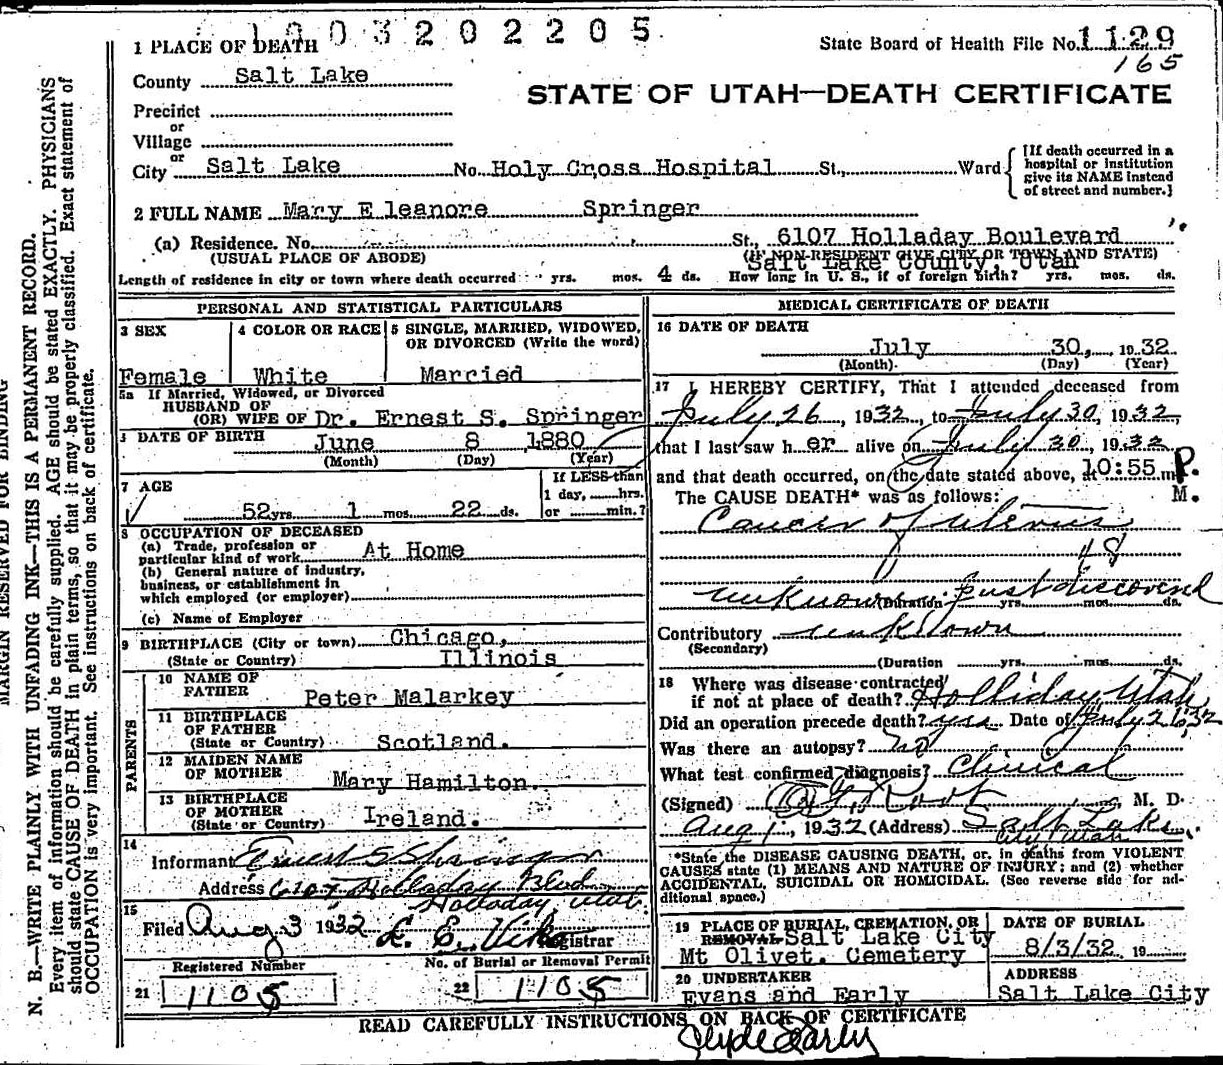 1003202205
1 PLACE OF DEATH
State Board of Health File No. 1129
165
County Salt Lake
STATE OF UTAH—DEATH CERTIFICATE
Precinct
or
Village
or
City Salt Lake No. Holy Cross Hospital St., Ward
[If death occurred in a
hospital or institution
give its NAME instead
of street and number.]
2 FULL NAME Mary E leanore Springer
(a) Residence. No. St., 6107 Holladay Boulevard
(USUAL PLACE OF ABODE) (IF NON-RESIDENT GIVE CITY OR TOWN AND STATE)
Salt Lake County, Utah
Length of residence in city or town where death occurred yrs. mos. 4 ds. How long in U. S., if of foreign birth? yrs. mos. ds.
PERSONAL AND STATISTICAL PARTICULARS
3 SEX
Female
4 COLOR OR RACE
White
5 SINGLE, MARRIED, WIDOWED,
OR DIVORCED (Write the word)
Married
5a If Married, Widowed, or Divorced
HUSBAND OF
(OR) WIFE OF Dr. Ernest S. Springer
DATE OF BIRTH June 8 1880
(Month) (Day) (Year)
7 AGE
52 yrs. 1 mos. 22 ds.
If LESS than
1 day, hrs.
or min.?
8 OCCUPATION OF DECEASED
(a) Trade, profession or
particular kind of work At Home
(b) General nature of industry,
business, or establishment in
which employed (or employer)
(c) Name of Employer
9 BIRTHPLACE (City or town) Chicago,
(State or Country) Illinois
PARENTS
10 NAME OF
FATHER Peter Malarkey
11 BIRTHPLACE
OF FATHER
(State or Country) Scotland.
12 MAIDEN NAME
OF MOTHER Mary Hamilton.
13 BIRTHPLACE
OF MOTHER
(State or Country) Ireland.
14
Informant Ernest S Springer
Address 6107 Holladay Blvd
Holladay Utah.
15
Filed Aug 3 1932 Registrar
Registered Number
21 1105
No. of Burial or Removal Permit
22 1105
MEDICAL CERTIFICATE OF DEATH
16 DATE OF DEATH
July 30, 1932
(Month) (Day) (Year)
17 I HEREBY CERTIFY, That I attended deceased from
July 26, 1932, to July 30, 1932,
that I last saw her alive on July 30, 1932
and that death occurred, on the date stated above, at 10:55 m P.
The CAUSE DEATH* was as follows: M.
Cancer of uterus
48
unknown just discovered
(Duration yrs. mos. ds.
Contributory unknown
(Secondary)
(Duration yrs. mos. ds.
18 Where was disease contracted
if not at place of death? Holliday, Utah
Did an operation precede death? yes Date of July 26 32
Was there an autopsy? no
What test confirmed diagnosis? Clinical
(Signed) Root, M. D.
Aug 1, 1932 (Address) Salt Lake
City Utah
*State the DISEASE CAUSING DEATH, or, in deaths from VIOLENT
CAUSES state (1) MEANS AND NATURE OF INJURY; and (2) whether
ACCIDENTAL, SUICIDAL OR HOMICIDAL. (See reverse side for ad-
ditional space.)
19 PLACE OF BURIAL, CREMATION, OR
REMOVAL Salt Lake City
Mt Olivet. Cemetery
DATE OF BURIAL
8/3/32, 19
20 UNDERTAKER
Evans and Early
ADDRESS
Salt Lake City
READ CAREFULLY INSTRUCTIONS ON BACK OF CERTIFICATE
Clyde Early
MARGIN RESERVED FOR BINDING
N. B.—WRITE PLAINLY WITH UNFADING INK—THIS IS A PERMANENT RECORD.
Every item of information should be carefully supplied. AGE should be stated EXACTLY. PHYSICIANS
should state CAUSE OF DEATH in plain terms, so that it may be properly classified. Exact statement of
OCCUPATION is very important. See instructions on back of certificate.